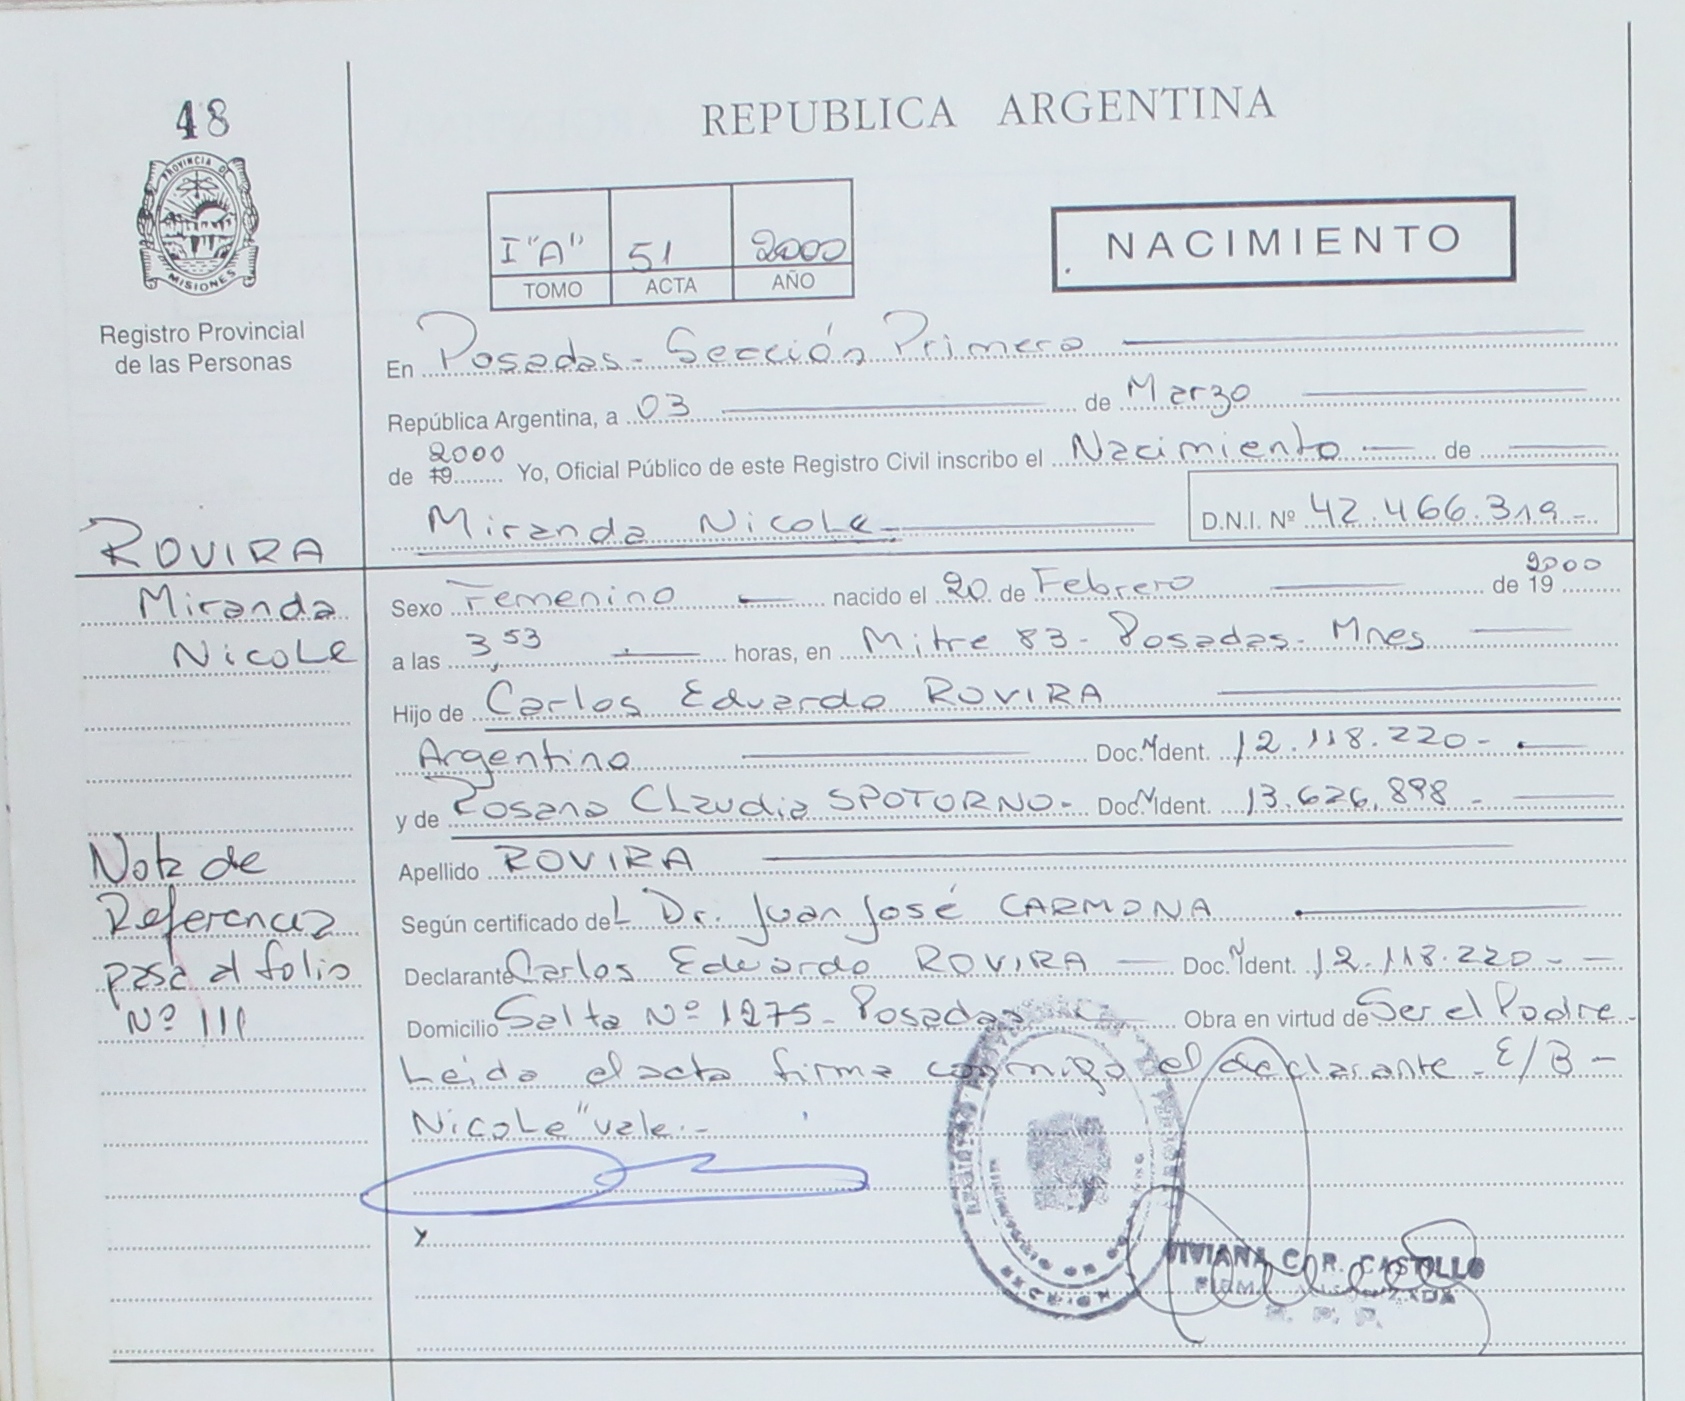 48
REPUBLICA ARGENTINA
PROVINCIA DE
MISIONES
Registro Provincial
de las Personas
I "A" 51 2000
TOMO ACTA AÑO
NACIMIENTO
En Posadas - Sección Primera
República Argentina, a 03 de Marzo
de 19 2000 Yo, Oficial Público de este Registro Civil inscribo el Nacimiento de
Miranda Nicole - D.N.I. Nº 42.466.319 -
ROVIRA
Miranda
Nicole
Sexo Femenino nacido el 20 de Febrero de 19 2000
a las 3,53 horas, en Mitre 83 - Posadas - Mnes
Hijo de Carlos Eduardo ROVIRA
Argentino Doc. N Ident. 12.118.220 -
y de Rosana Claudia SPOTORNO - Doc. N Ident. 13.626.898 -
Apellido ROVIRA
Según certificado del Dr. Juan José CARMONA
Declarante Carlos Eduardo ROVIRA - Doc. N Ident. 12.118.220 - -
Domicilio Salta Nº 1275 - Posadas Obra en virtud de Ser el Padre -
Leida el acta firma conmigo el declarante - E/B -
Nicole" vale. -
y
Nota de
Referencia
pasa al folio
Nº 111
VIVIANA COR. CASTILLO
R. P. P.